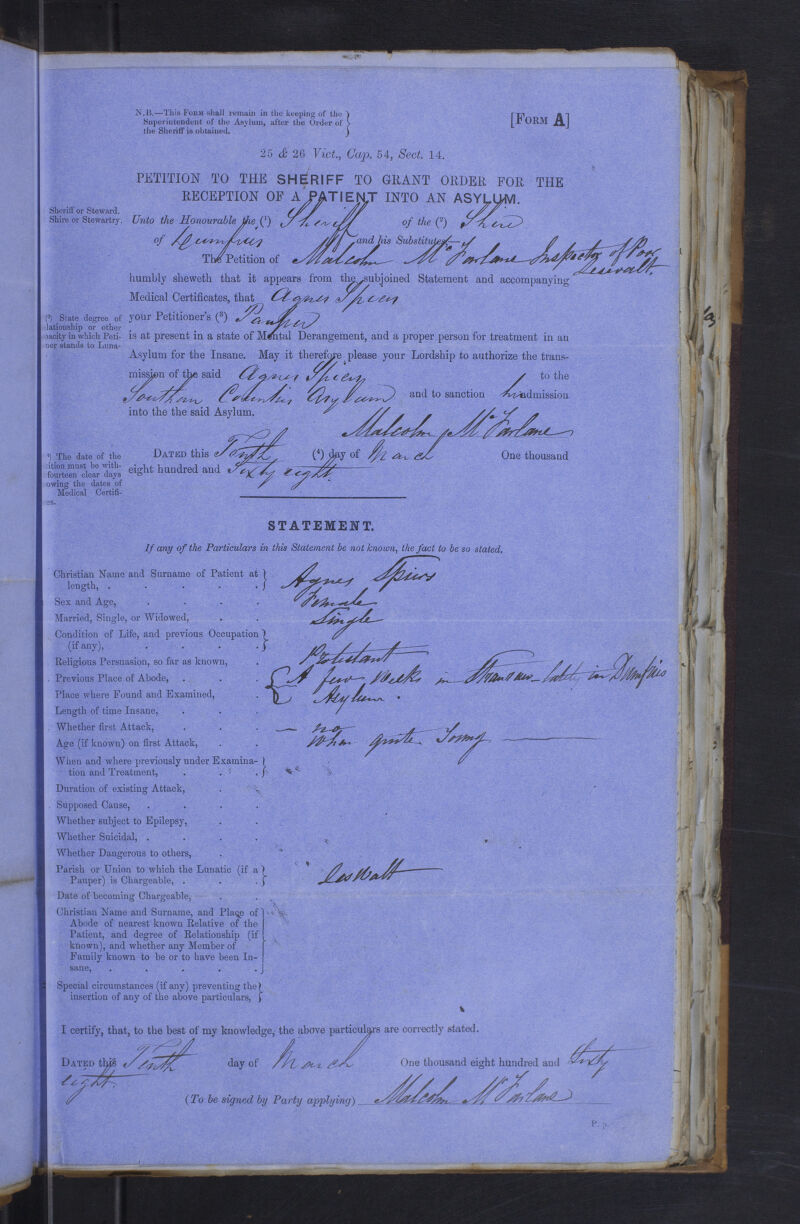 N.B.—This Form shall remain in the keeping of the
Superintendent of the Asylum, after the Order of
the Sheriff is obtained.
[Form A]
25 & 26 Vict., Cap. 54, Sect. 14.
PETITION TO THE SHERIFF TO GRANT ORDER FOR THE
RECEPTION OF A PATIENT INTO AN ASYLUM.
Sheriff or Steward.
Shire or Stewartry.
Unto the Honourable the (¹) Sheriff of the (²) Shire
of Dumfries and his Substitutes
The Petition of Malcolm McFarlane Inspector of Poor
Leswalt.
humbly sheweth that it appears from the subjoined Statement and accompanying
Medical Certificates, that Agnes Spiers
(³) State degree of
lationship or other
pacity in which Peti-
ner stands to Luna-
your Petitioner's (³) Pauper
is at present in a state of Mental Derangement, and a proper person for treatment in an
Asylum for the Insane. May it therefore please your Lordship to authorize the trans-
mission of the said Agnes Spiers to the
Southern Counties Asylum and to sanction her admission
into the the said Asylum.
Malcolm McFarlane
⁴) The date of the
ition must be with-
fourteen clear days
owing the dates of
Medical Certifi-
es.
Dated this Tenth (⁴) day of March One thousand
eight hundred and Sixty eight.
STATEMENT.
If any of the Particulars in this Statement be not known, the fact to be so stated.
Christian Name and Surname of Patient at
length, . Agnes Spiers
Sex and Age, Female
Married, Single, or Widowed, Single
Condition of Life, and previous Occupation
(if any),
Religious Persuasion, so far as known, Protestant
Previous Place of Abode, A few weeks in Stranraer - lately in Dumfries
Place where Found and Examined, Asylum.
Length of time Insane,
Whether first Attack, — no
Age (if known) on first Attack, When quite Young —
When and where previously under Examina-
tion and Treatment,
Duration of existing Attack,
Supposed Cause,
Whether subject to Epilepsy,
Whether Suicidal,
Whether Dangerous to others,
Parish or Union to which the Lunatic (if a
Pauper) is Chargeable, Leswalt
Date of becoming Chargeable,
Christian Name and Surname, and Place of
Abode of nearest known Relative of the
Patient, and degree of Relationship (if
known), and whether any Member of
Family known to be or to have been In-
sane,
Special circumstances (if any) preventing the
insertion of any of the above particulars,
I certify, that, to the best of my knowledge, the above particulars are correctly stated.
Dated this Tenth day of March One thousand eight hundred and Sixty
eight.
(To be signed by Party applying) Malcolm McFarlane